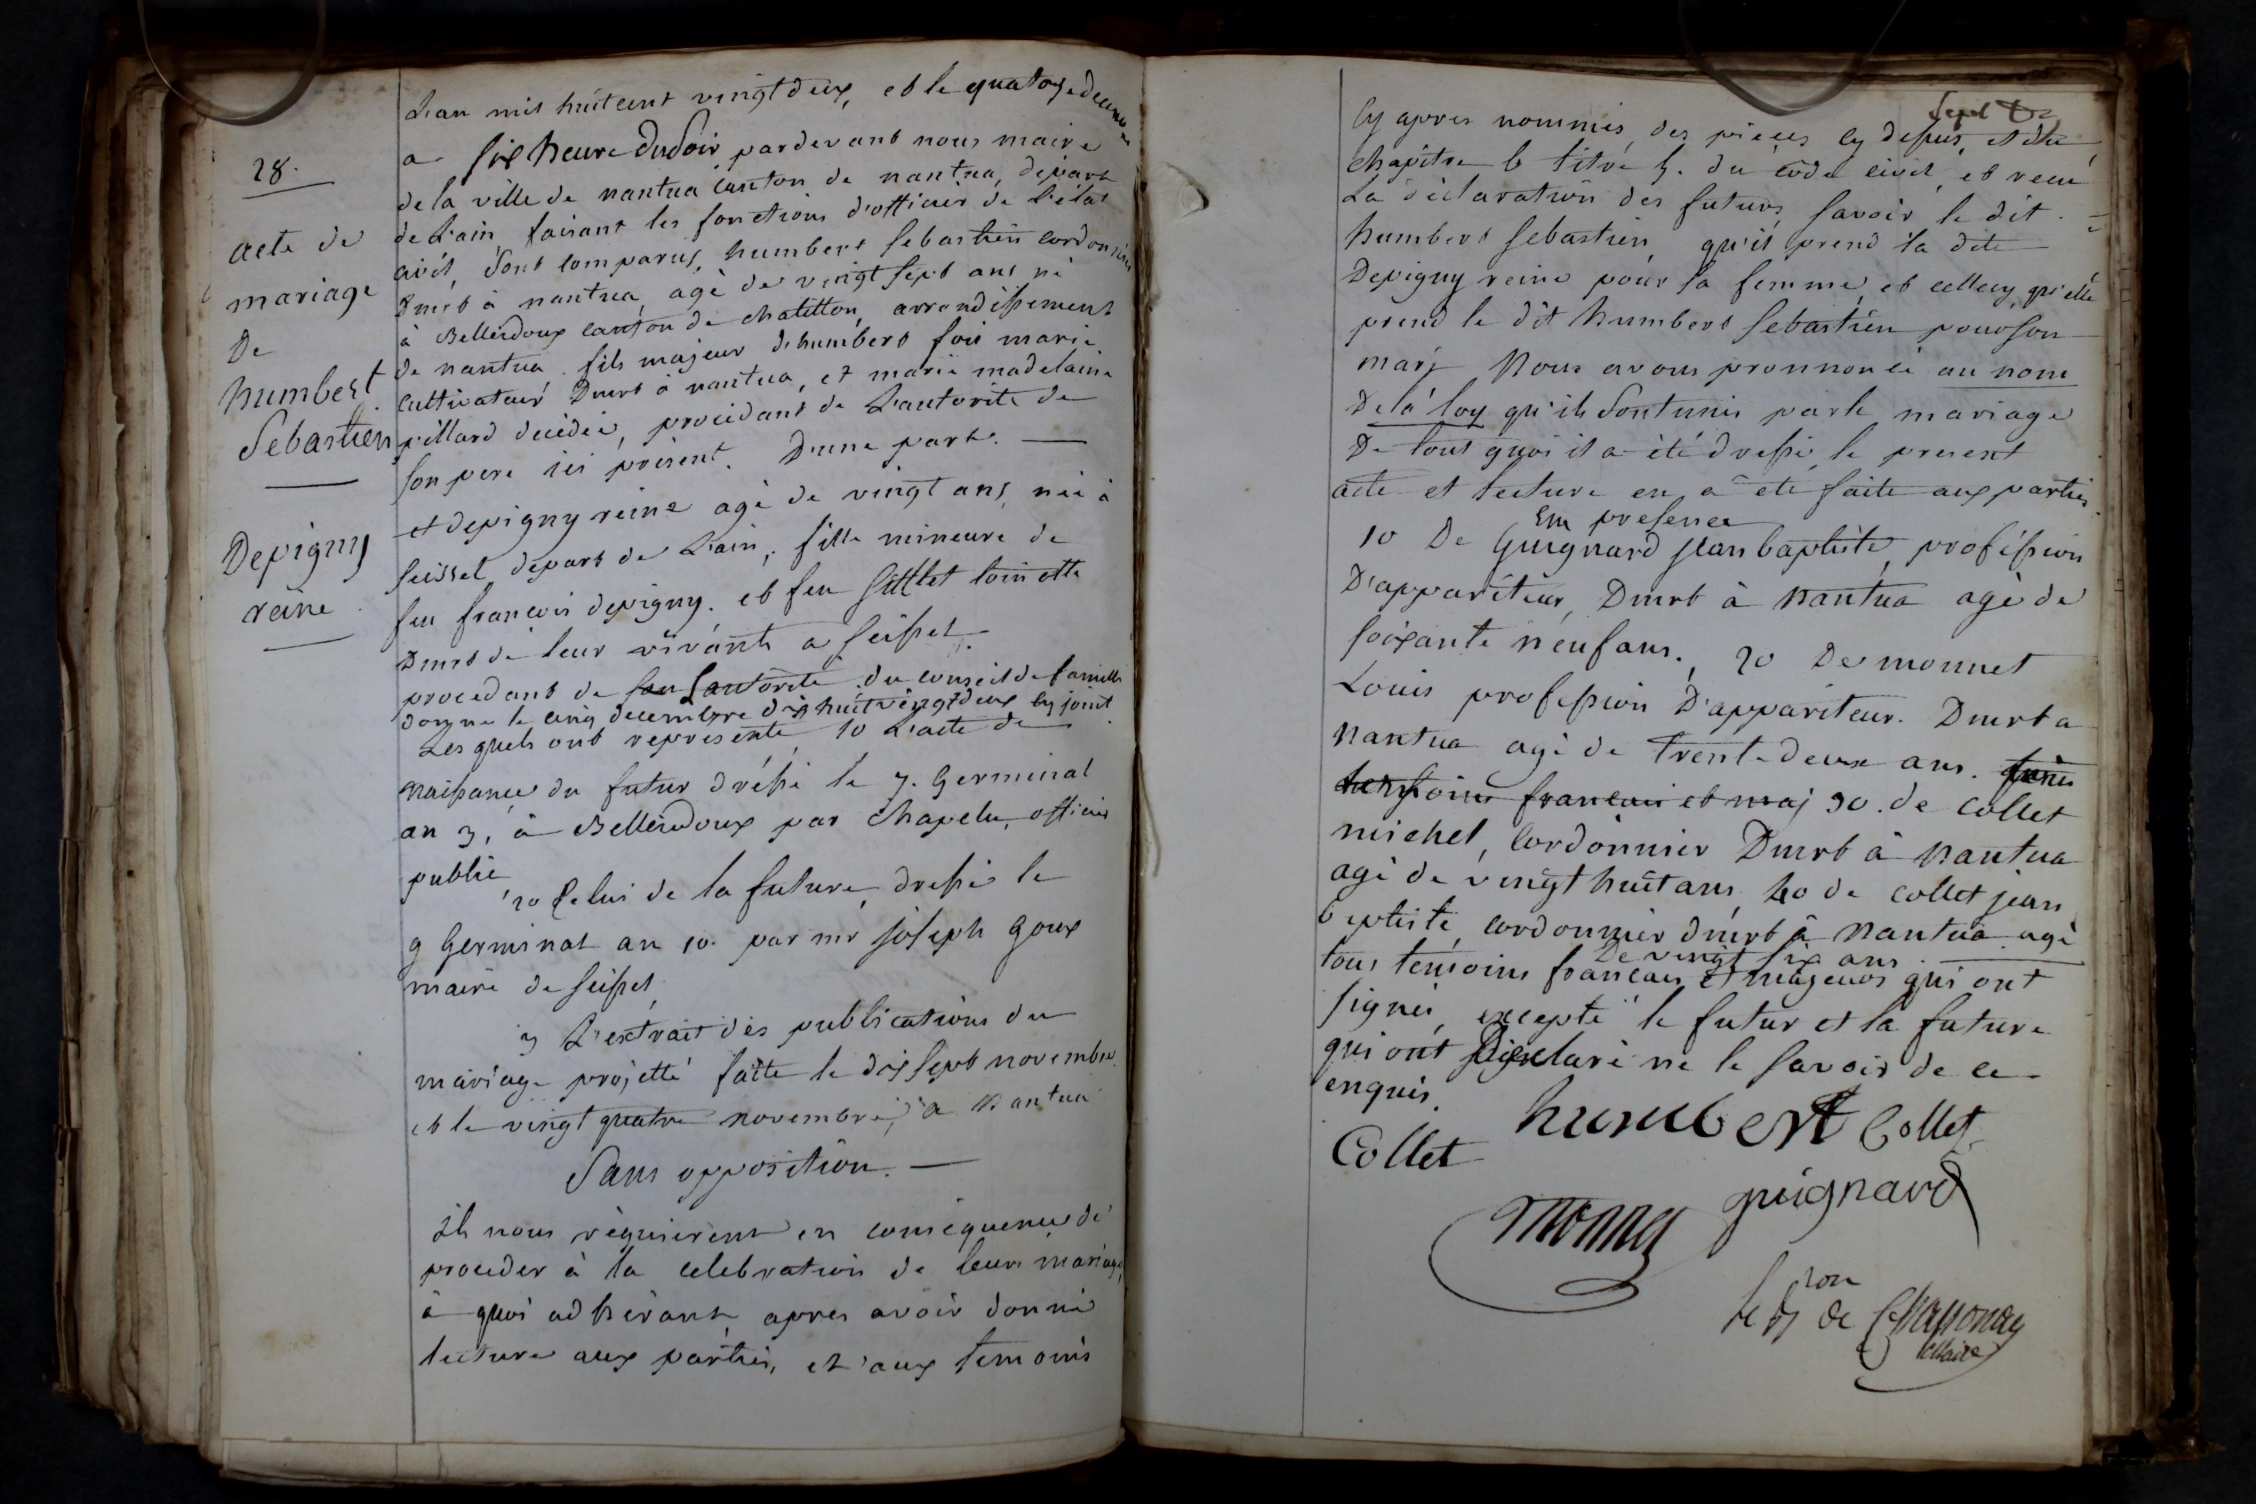 28.
acte de
mariage
De
humbert
Sebastien
Depigny
reine
L'an mil huitcent vingt deux, et le quatorze decembre
a six heure du soir pardevant nous maire
de la ville de nantua canton de nantua, depart
de L'ain, faisant les fonctions d'officier de L'etat
civil, sont comparus, humbert sebastien cordonnier
Dmrt à nantua, agé de vingt sept ans né
à Belleydoux canton de chatillon, arrondissement
de nantua fils majeur de humbert foi marie
cultivateur Dmrt à nantua, et marie madelaine
pillard décédée, procédant de L'autorité de
son pere ici présent. D'une part. —
et depigny reine agé de vingt ans, née à
seissel, depart de L'ain, fille mineure de
feu francois depigny. et feu toinette
Dmrt de leur vivants a seissel.
procedant de L'autorité du conseil de famille
donné le cinq decembre dix huit vingt deux cy joint.
Les quels ont representé 1o L'acte de
naissance du futur dréssé le 7. Germinal
an 3, à Belleydoux par Chapelu, officier
public
2o Celui de la future, dressé le
9 Germinal an 10. par mr joseph Goux
maire de seissel,
3 L'extrait dès publications du
mariage projetté faite le dix sept novembre
et le vingt quatre novembre, a Nantua
Sans opposition. —
ils nous réquierent en conséquence de
proceder à la celebration de leur mariage,
à quoi adhérant, apres avoir donné
lecture aux parties, et aux temoins
cy apres nommés, des pièces cy dessus, et du
chapitre 6 titre 5. du code civil, et recu
La déclaration des futurs, savoir le dit
humbert sebastien, qu'il prend la dite
Depigny reine pour sa femme, et cellecy, qu'elle
prend le dit humbert sebastien pour son
mary Nous avons prononcé au nom
De la loy qu'ils sont unis par le mariage
De tout quoi il a été dressé le present
acte et lecture en a été faite aux parties.
Em presence
1o De Guignard jean baptiste, profession
D'appariteur, Dmrt à Nantua agé de
soixante neuf ans., 2o De monnet
Louis profession D'appariteur. Dmrt a
Nantua agé de trente deux ans.
temoins francais et maj 3o. de collet
michel, cordonnier Dmrt à Nantua
agé de vingt huit ans, 4o de collet jean
baptiste, cordonnier dmrt à Nantua agé
De vingt six ans.
tous temoins francais et majeurs qui ont
signés, excepté le futur et la future
qui ont declaré ne le savoir de ce
enquis.
humbert Collet
Collet
guignard
Monnet
le Bron de Chaponay
Maire